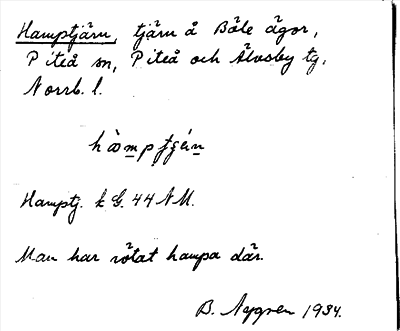 Hamptjärn, tjärn å Böle ägor,
Piteå sn, Piteå och Älvsby tg,
Norrb. l.
Hamptj. k G. 44 NM.
Man har rötat hampa där.
B. Nygren 1934.